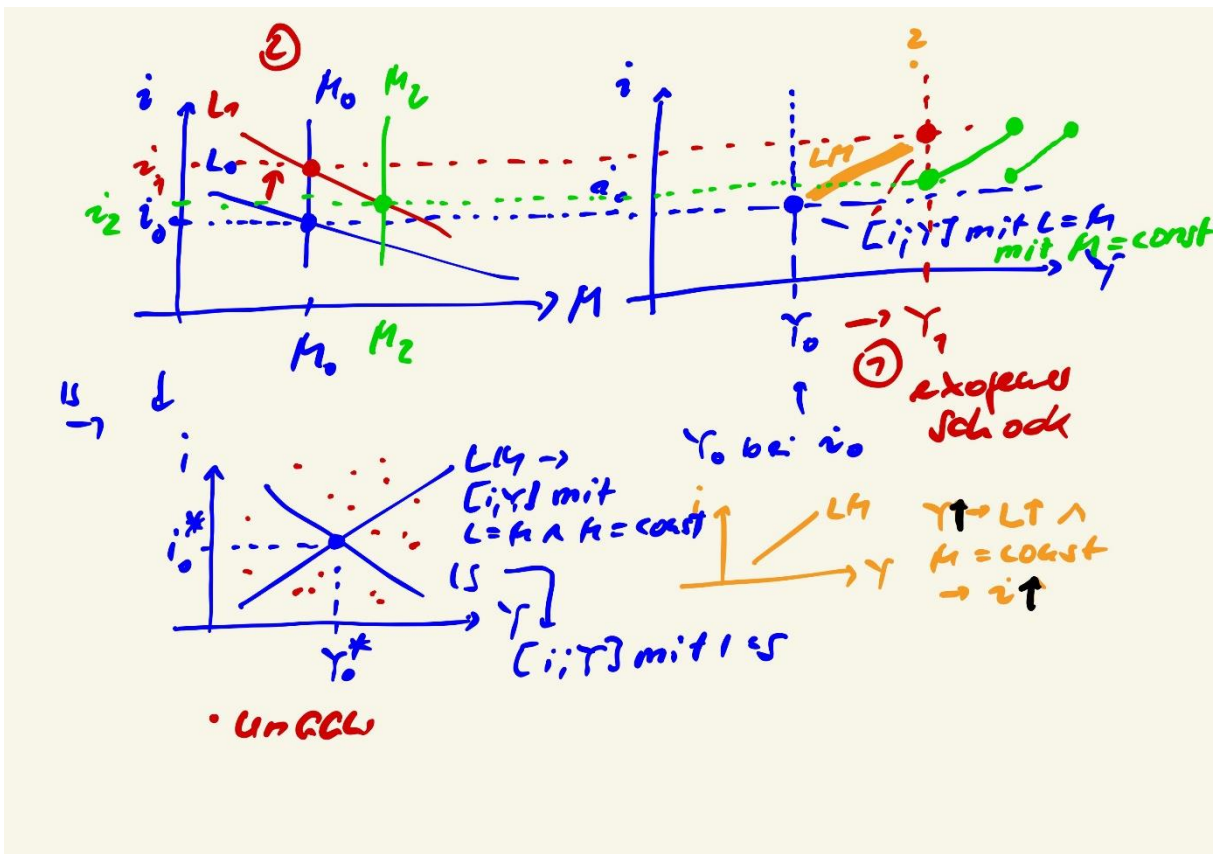 ②
i
L₁
M₀
M₂
L₀
i₁
i₂
i₀
M
M₀
M₂
2
i
LM
i₀
[i;Y] mit L=M
mit M=const
Y
Y₀ → Y₁
①
exogener
Schock
↑
Y₀ bei i₀
IS
→
i
LM →
[i,Y] mit
L=M ∧ M=const
i₀*
IS
Y
Y₀*
[i;Y] mit I=S
• unGGW
i
LM
Y
Y↑ → L↑ ∧
M = const
→ i↑